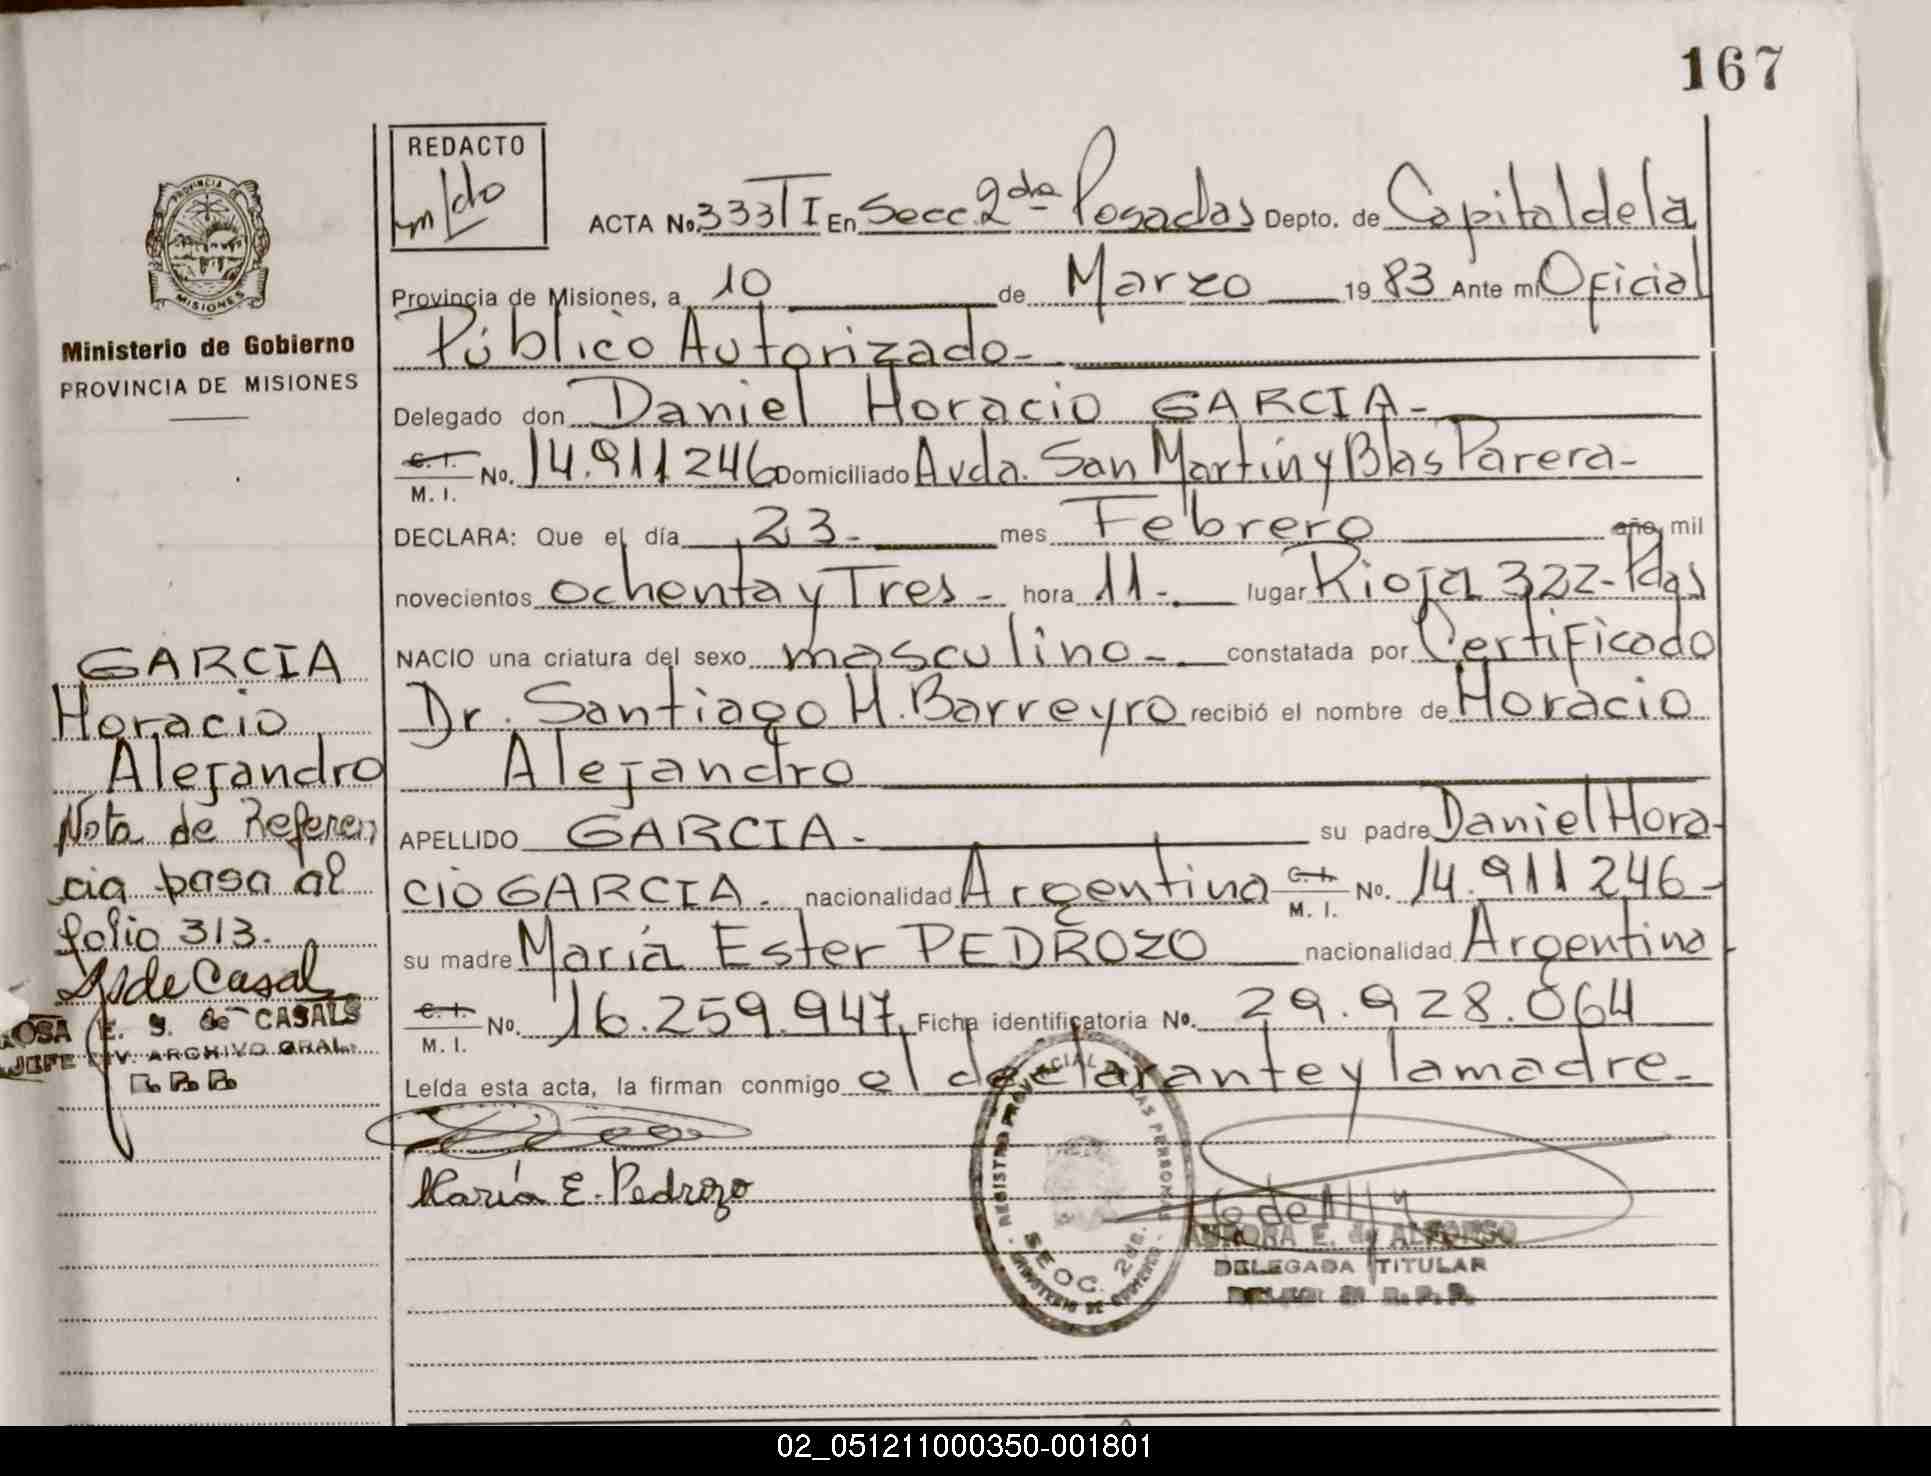 167
REDACTO
ACTA No. 333 TI En Secc. 2da Posadas Depto. de Capital de la
Provincia de Misiones, a 10 de Marzo 1983 Ante mi Oficial
Público Autorizado-
Delegado don Daniel Horacio GARCIA-
C. I. / M. I. No. 14.911246 Domiciliado Avda. San Martín y Blas Parera-
DECLARA: Que el día 23- mes Febrero año mil
novecientos ochenta y Tres- hora 11-. lugar Rioja 322-Pdas
NACIO una criatura del sexo masculino- constatada por Certificado
Dr. Santiago H. Barreyro recibió el nombre de Horacio
Alejandro
APELLIDO GARCIA- su padre Daniel Hora-
cio GARCIA. nacionalidad Argentina C. I. / M. I. No. 14.911246-
su madre María Ester PEDROZO nacionalidad Argentina
C. I. / M. I. No. 16.259.947 Ficha identificatoria No. 29.928.064
Leída esta acta, la firman conmigo el declarante y la madre-
María E. Pedrozo
PROVINCIA DE
MISIONES
Ministerio de Gobierno
PROVINCIA DE MISIONES
GARCIA
Horacio
Alejandro
Nota de Referen
cia pasa al
folio 313.
de Casal
E. S. de CASALS
JEFE DIV. ARCHIVO GRAL.
R. P. P.
REGISTRO PROVINCIAL DE LAS PERSONAS
SECC. 2da.
MINISTERIO DE GOBIERNO
AURORA E. de ALFONSO
DELEGADA TITULAR
R. P. P.
02_051211000350-001801